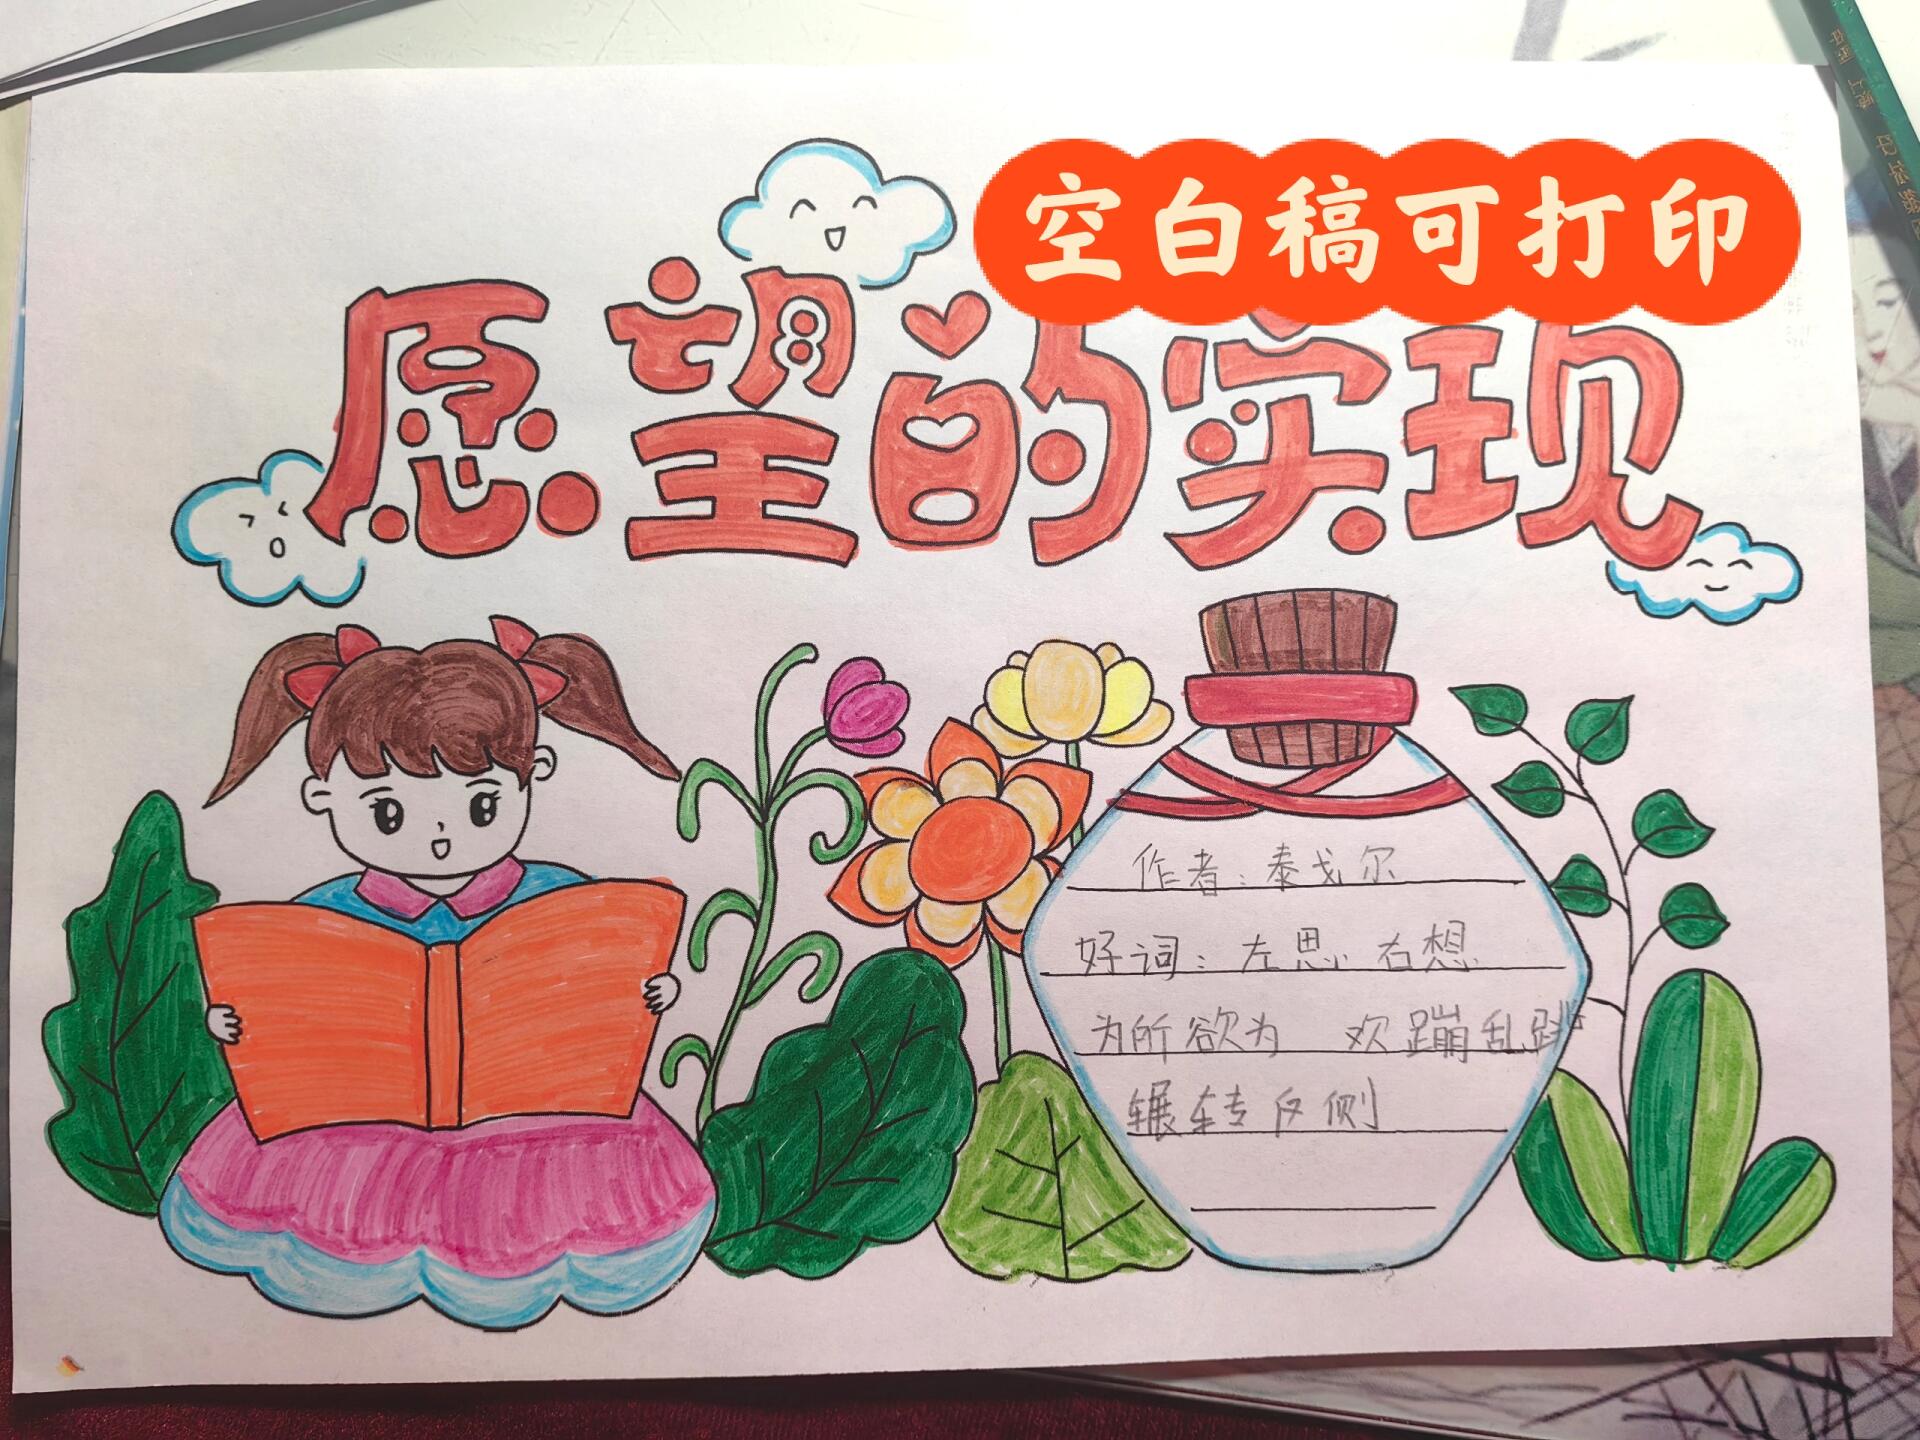 空白稿可打印
愿望的实现
作者：泰戈尔
好词：左思右想
为所欲为 欢蹦乱跳
辗转反侧